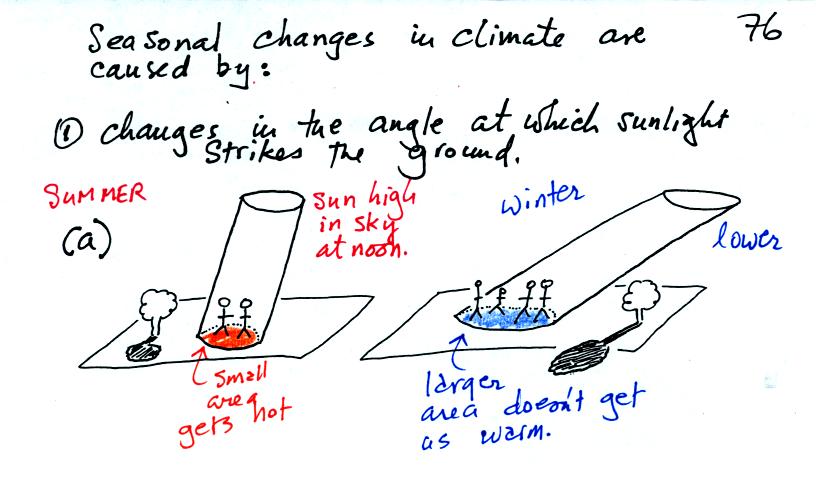 Seasonal changes in climate are
76
caused by:
① changes in the angle at which sunlight
strikes the ground.
SUMMER
(a)
Sun high
in sky
at noon.
winter
lower
small
area
gets hot
larger
area doesn't get
as warm.